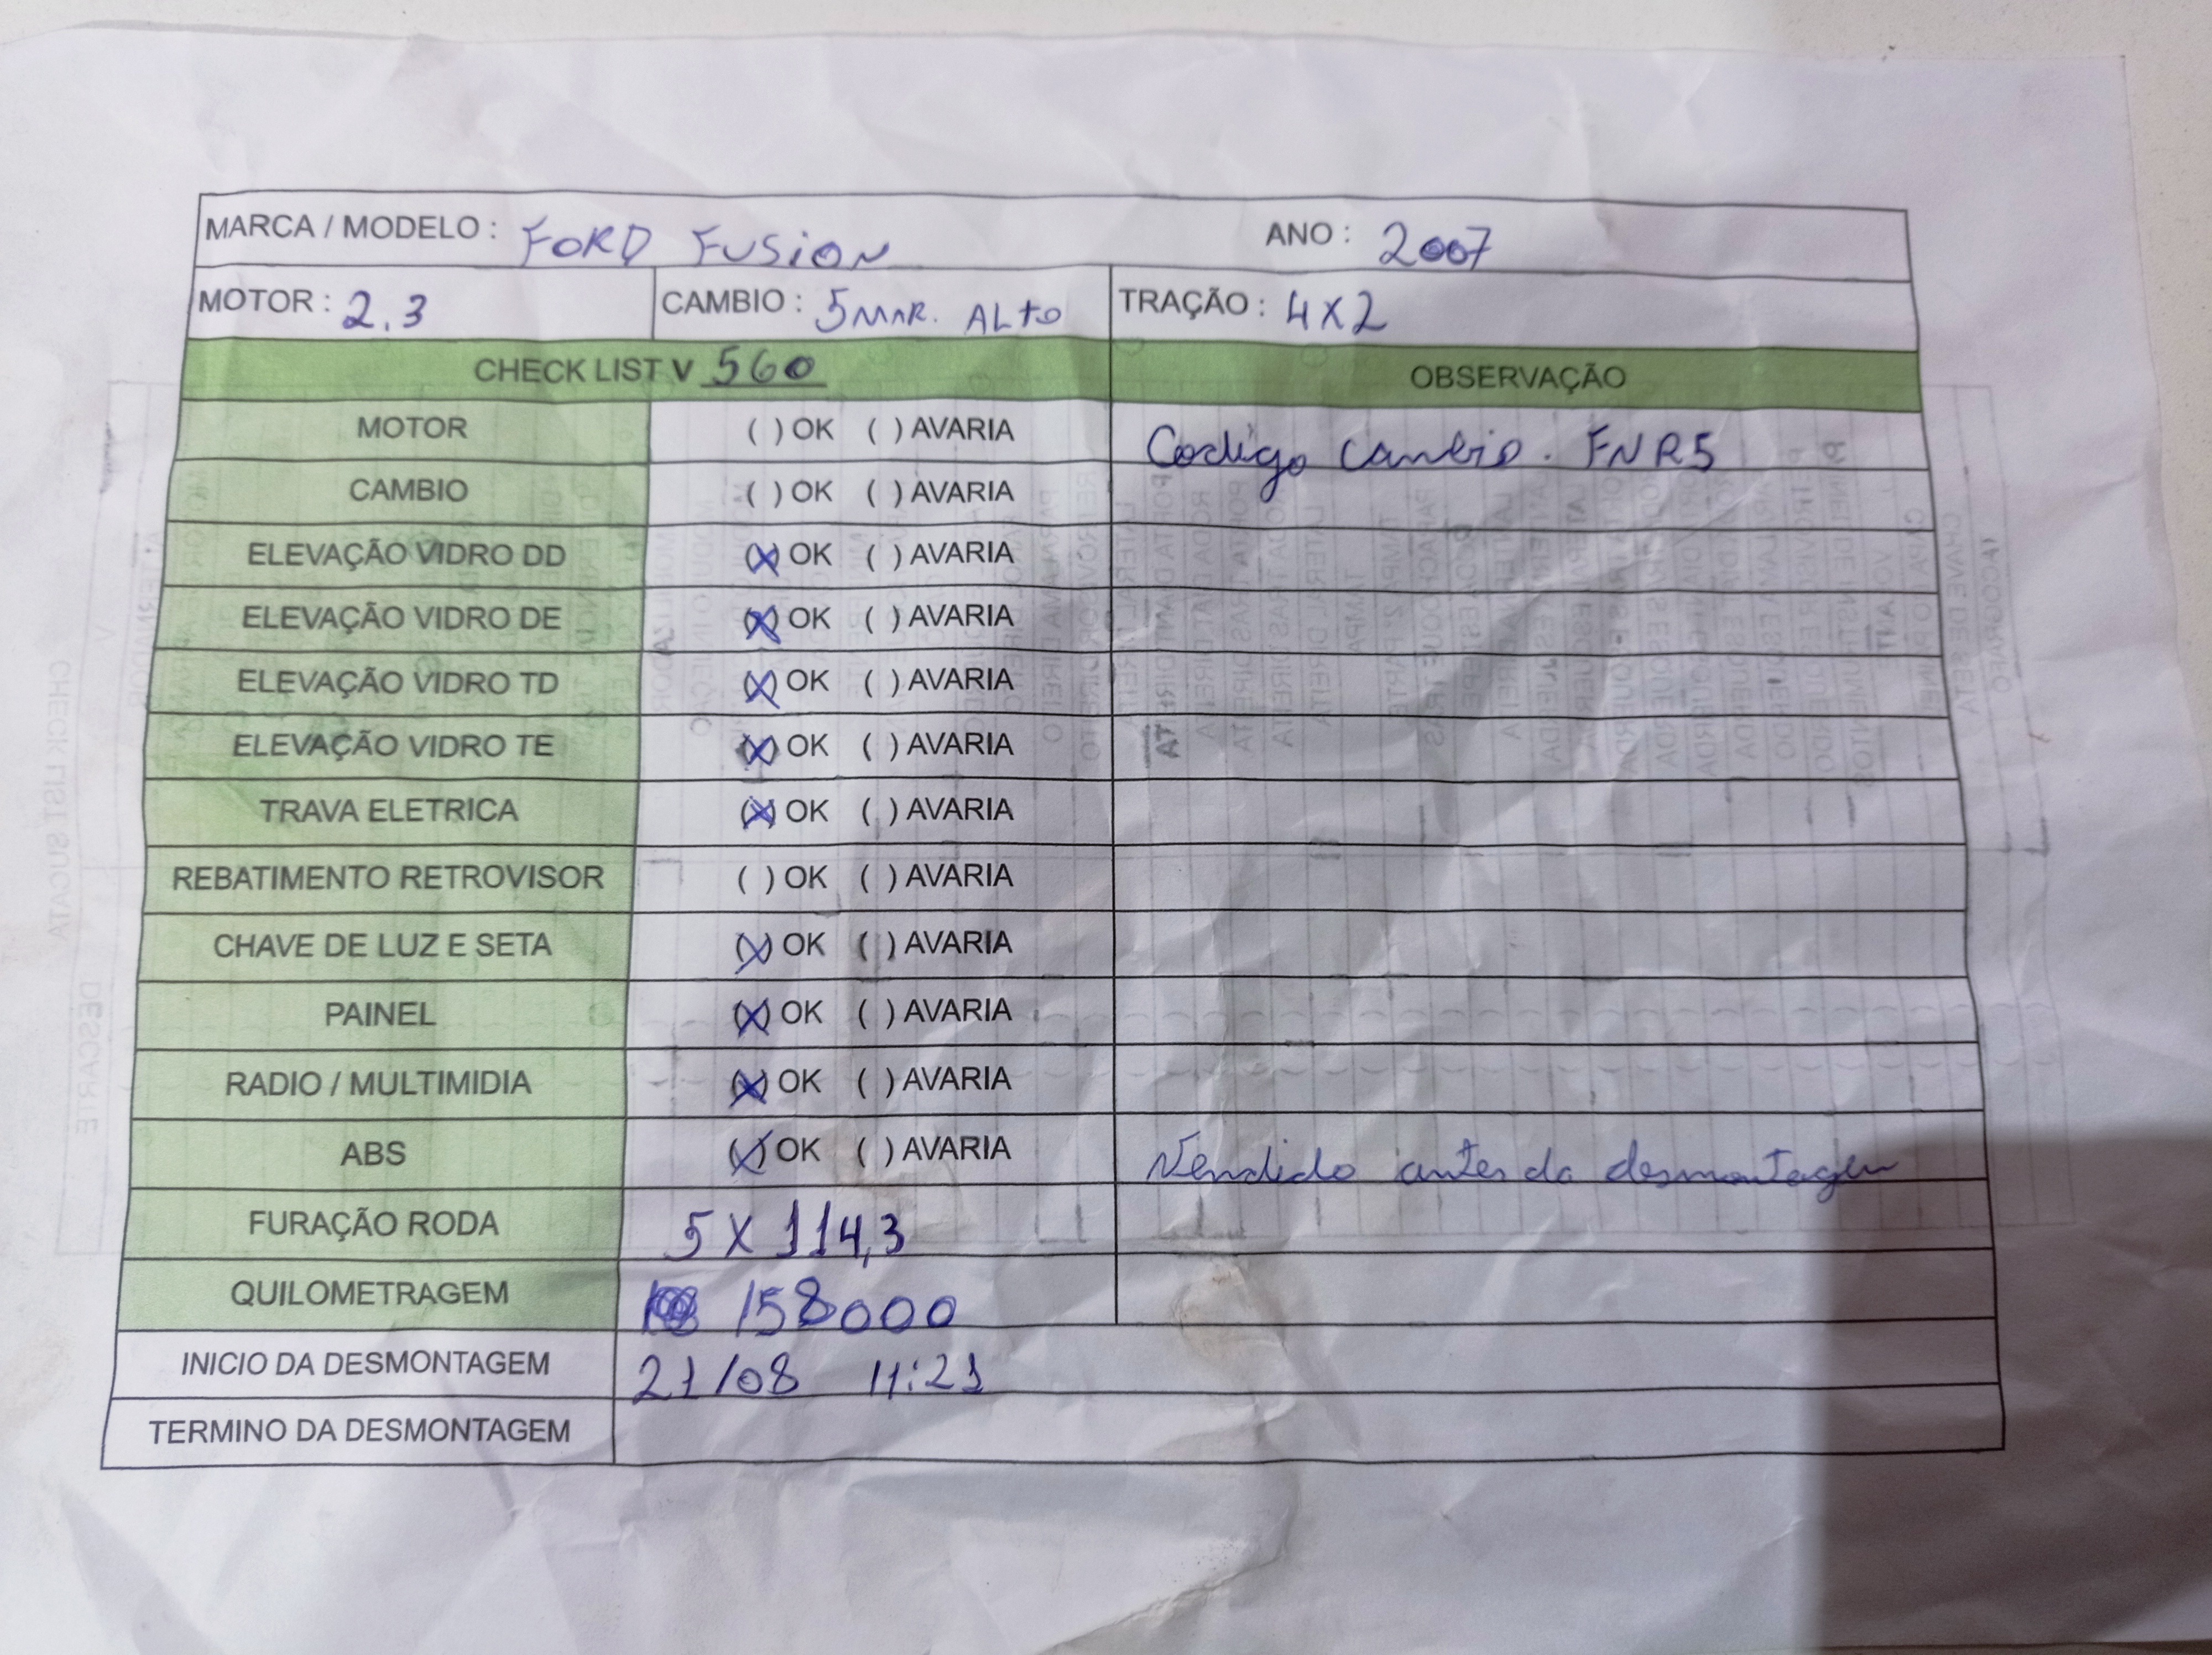 MARCA / MODELO : FORD FUSION ANO : 2007
MOTOR : 2.3 CAMBIO : 5 MAR. ALTO TRAÇÃO : 4X2
CHECK LIST V 560 OBSERVAÇÃO
MOTOR ( ) OK ( ) AVARIA Codigo cambio. FNR5
CAMBIO ( ) OK ( ) AVARIA
ELEVAÇÃO VIDRO DD (X) OK ( ) AVARIA
ELEVAÇÃO VIDRO DE (X) OK ( ) AVARIA
ELEVAÇÃO VIDRO TD (X) OK ( ) AVARIA
ELEVAÇÃO VIDRO TE (X) OK ( ) AVARIA
TRAVA ELETRICA (X) OK ( ) AVARIA
REBATIMENTO RETROVISOR ( ) OK ( ) AVARIA
CHAVE DE LUZ E SETA (X) OK ( ) AVARIA
PAINEL (X) OK ( ) AVARIA
RADIO / MULTIMIDIA (X) OK ( ) AVARIA
ABS (X) OK ( ) AVARIA Vendido antes da desmontagem
FURAÇÃO RODA 5 X 114,3
QUILOMETRAGEM 158000
INICIO DA DESMONTAGEM 21/08 11:21
TERMINO DA DESMONTAGEM